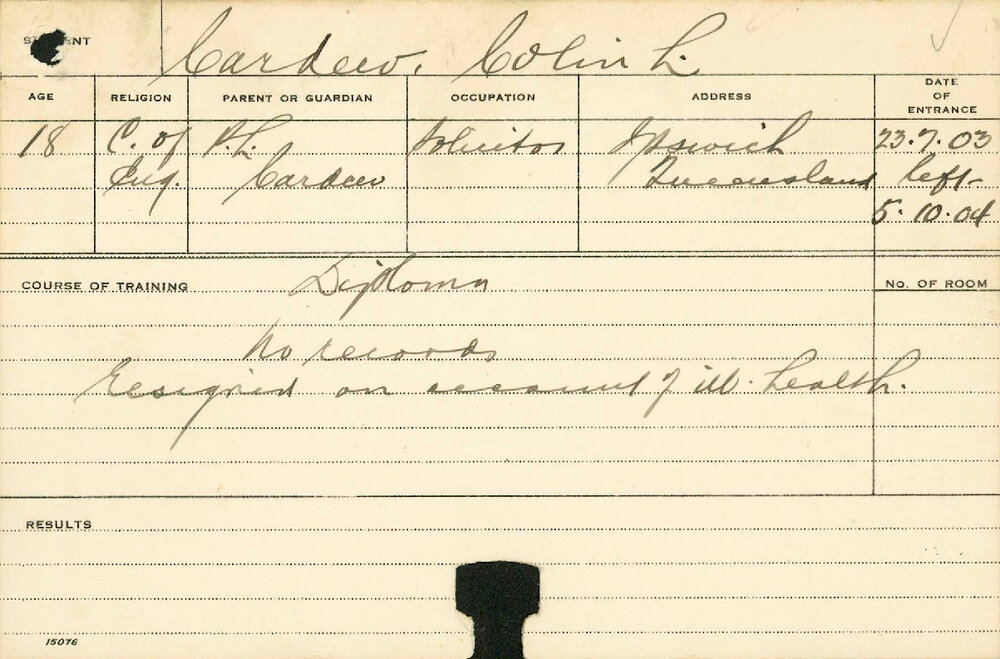 STUDENT Cardew. Colin L.
AGE RELIGION PARENT OR GUARDIAN OCCUPATION ADDRESS DATE OF ENTRANCE
18 C. of P.L. Solicitor Ipswich 23.7.03
Eng. Cardew Queensland left
5.10.04
COURSE OF TRAINING Diploma No. OF ROOM
No records
Resigned on account of ill health.
RESULTS
15076